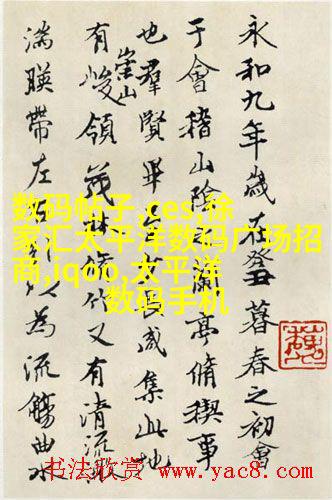 永和九年歲在癸丑暮春之初會
于會稽山陰之蘭亭脩稧事
也羣賢畢至少長咸集此地
有崇山峻領茂林脩竹又有清流激
湍暎帶左右引以為流觴曲水
数码帖子,ces,徐
家汇太平洋数码广场招
商,iqoo,太平洋
数码手机
书法欣赏 www.yac8.com